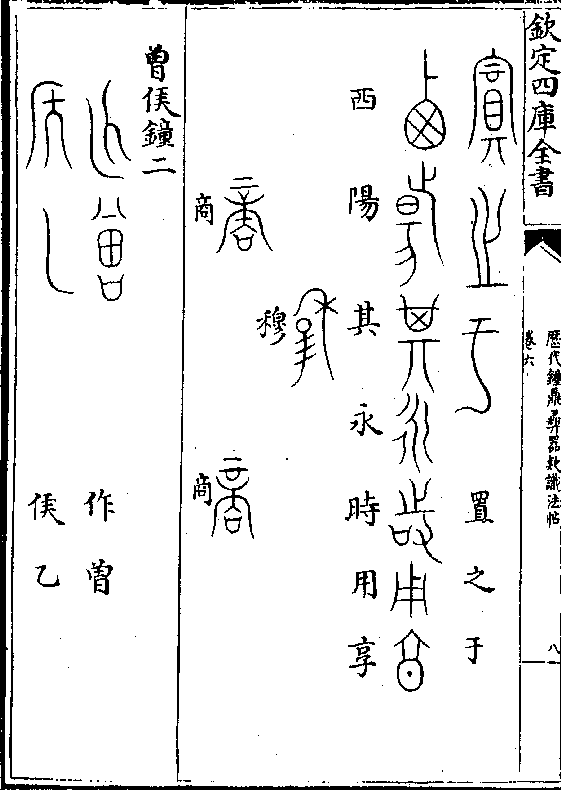 欽定四庫全書
歷代鐘鼎彝器款識法帖
卷六
八
置之于
西陽其永時用享
穆
商
商
曾侯鐘二
作曾
侯乙